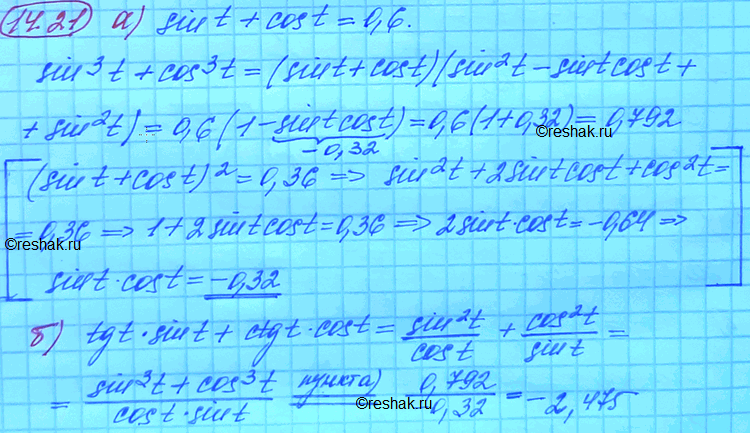 14.21 а) sin t + cos t = 0,6.
sin³t + cos³t = (sin t + cos t)(sin²t - sin t cos t +
+ sin²t) = 0,6 (1 - sin t cos t) = 0,6 (1 + 0,32) = 0,792
-0,32
©reshak.ru
(sin t + cos t)² = 0,36 => sin²t + 2 sin t cos t + cos²t =
= 0,36 => 1 + 2 sin t cos t = 0,36 => 2 sin t · cos t = -0,64 =>
©reshak.ru
sin t · cos t = -0,32
б) tg t · sin t + ctg t · cos t = sin²t/cos t + cos²t/sin t =
= (sin³t + cos³t)/(cos t · sin t) пункт а) 0,792/-0,32 = -2,475
©reshak.ru